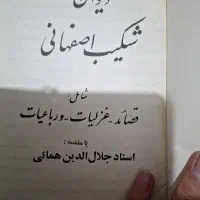 دیوان
شکیب اصفهانی
شامل:
قصائد - غزلیات - و رباعیات
با مقدمه:
استاد جلال‌الدین همائی